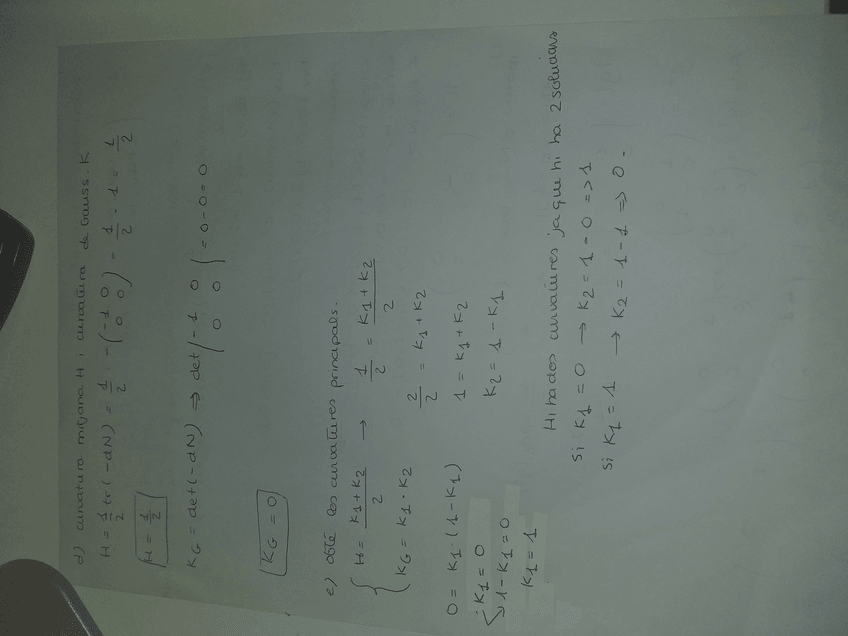 d) curvatura mitjana H i curvatura de Gauss. K
H = 1/2 tr(-dN) = 1/2 · -(-1 0 / 0 0) = 1/2 · 1 = 1/2
H = 1/2
KG = det(-dN) => det |-1 0 / 0 0| = 0 - 0 = 0
KG = 0
e) obté les curvatures principals.
{ H = K1 + K2 / 2 → 1/2 = K1 + K2 / 2
KG = K1 · K2
2/2 = K1 + K2
1 = K1 + K2
K2 = 1 - K1
0 = K1 · (1 - K1)
K1 = 0
1 - K1 = 0
K1 = 1
Hi ha dos curvatures ja que hi ha 2 solucions
Si K1 = 0 → K2 = 1 - 0 => 1
Si K1 = 1 → K2 = 1 - 1 => 0.